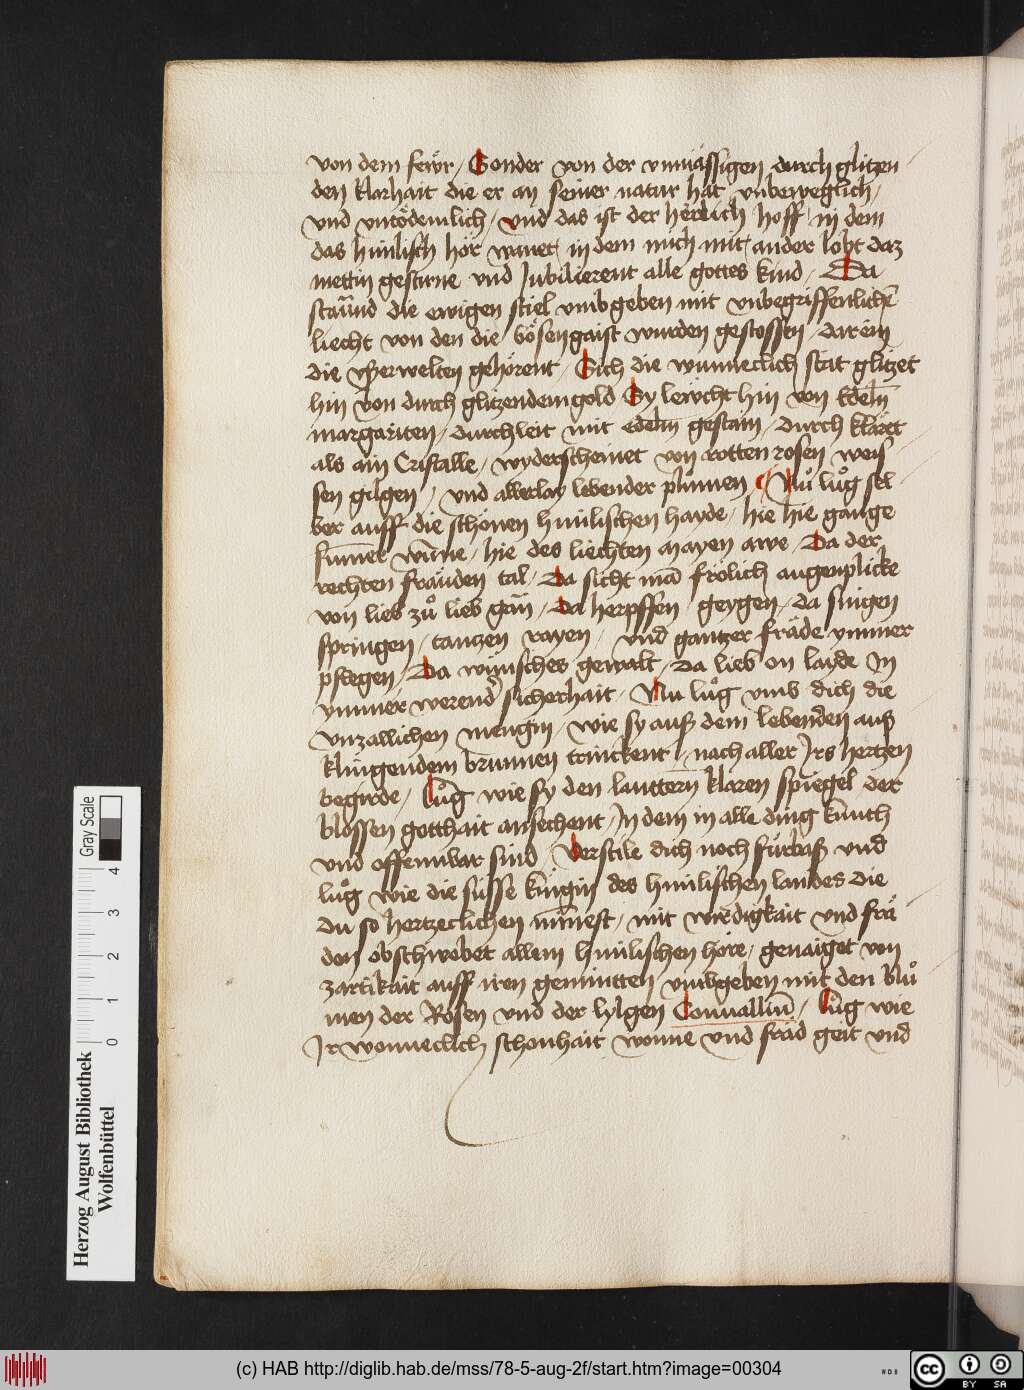 von dem fewr / Sonder von der vnmässigen durch glitzen
den klarhait die er an seiner natur hat vnberweglich /
vnd vntödemlich / vnd das ist der herrlich hoff in dem
das himlisch hör wanet in dem mich mit ander lobt daz
mettin gestirne vnd Jubilierent alle gottes kind / Da
staund die ewigen stiel vmbgeben mit vnbegriffenlichē
liecht von den die bösen gaist wurden gestossen / dar ein
die vsserwelten gehörent / Sich die wunneclich stat glitzet
hin von durch glitzendem gold Sy lewcht hin von edeln̄
margariten / durchleit mit edeln̄ gestain / durch kläret
als ain Cristalle / wyderscheinet von rotten rosen weis
sen gilgen / vnd allerlay lebender plůmen / Nů lůg sel
ber auff die schönen himlischen hayde / hie hie gantze
sumer wūne / hie des liechten mayen awe / Da der
rechten fräuden tal / Da sicht mā frölich augenplicke
von lieb zů lieb gān / da herpffen geygen / da singen
springen / tantzen rayen / vnd gantzer fräde ymmer
pflegen / Da wünsches gewalt / da lieb on laide In
ymmer werend̾ sicherhait / Nu lůg vmb dich die
vnzallichen mengin / wie sy auß dem lebenden auß
klingendem brunnen trinckent / nach aller Jrs hertzen
begirde / Lůg wie sy den lauttern klaren spiegel der
blossen gotthait ansechent / In dem in alle ding kunth
vnd offennbar sind / Verstile dich noch fürbaß vnd
lůg wie die süsse kūigin des himlischen landes die
du so hertzeclichen minnest / mit wirdigkait vnd frä
den obschwebet allem himlischen höre / genaiget von
zartikait auff iren gemintten vmbgeben mit den blů
men der Rosen vnd der lylgen Conuallium / Lůg wie
Jr wonneclich schonhait wonne vnd fräd geit vnd
Gray Scale
0 1 2 3 4
Herzog August Bibliothek
Wolfenbüttel
(c) HAB http://diglib.hab.de/mss/78-5-aug-2f/start.htm?image=00304
cc BY SA